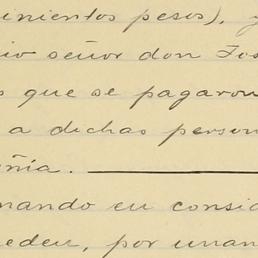 inientos pesos), y
io señor don Jos
s que se pagaron
a dichas person
ñia.
nando en consid
eden, por unan